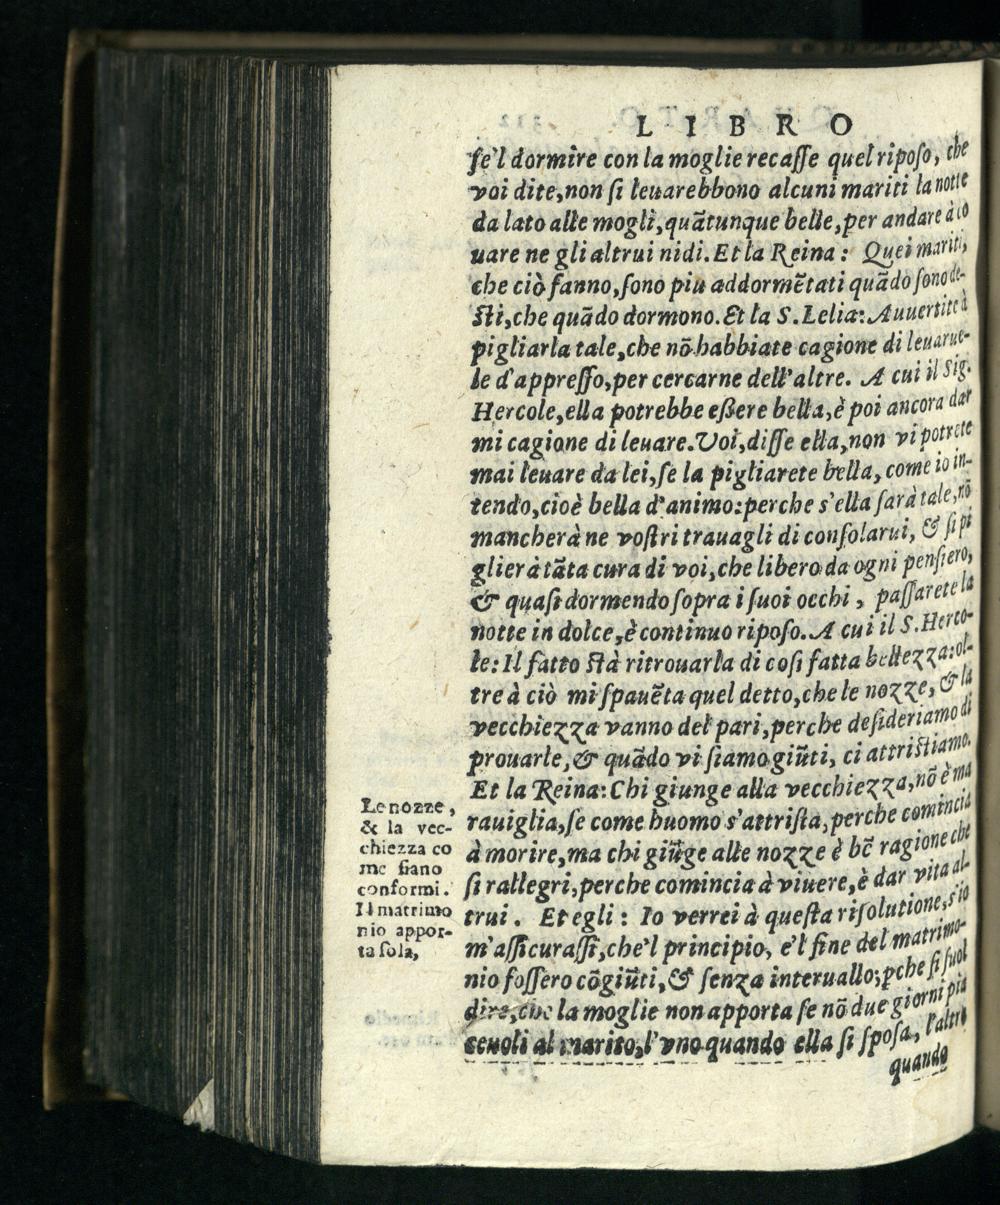 LIBRO
ſe'l dormire con la moglie recaſſe quel ripoſo, che
voi dite, non ſi leuarebbono alcuni mariti la notte
da lato alle mogli, quãtunque belle, per andare à co
uare ne gli altrui nidi. Et la Reina: Quei mariti,
che ciò fanno, ſono piu addormẽtati quãdo ſono de-
ſti, che quãdo dormono. Et la S. Lelia: Auuertite à
pigliarla tale, che nõ habbiate cagione di leuarue-
le d'appreſſo, per cercarne dell'altre. A cui il Sig.
Hercole, ella potrebbe eßere bella, è poi ancora dar
mi cagione di leuare. Voi, diſſe ella, non vi potrete
mai leuare da lei, ſe la pigliarete bella, come io in-
tendo, cioè bella d'animo: perche s'ella ſarà tale, nõ
mancherà ne voſtri trauagli di conſolarui, & ſi pi
glierà tãta cura di voi, che libero da ogni penſiero,
& quaſi dormendo ſopra i ſuoi occhi, paſſarete la
notte in dolce, è continuo ripoſo. A cui il S. Herco-
le: Il fatto ſtà ritrouarla di coſi fatta bellezza: ol-
tre à ciò mi ſpauẽta quel detto, che le nozze, & la
vecchiezza vanno del pari, perche deſideriamo di
prouarle, & quãdo vi ſiamo giũti, ci attriſtiamo.
Et la Reina: Chi giunge alla vecchiezza, nõ è ma
rauiglia, ſe come huomo s'attriſta, perche comincia
à morire, ma chi giũge alle nozze è bẽ ragione che
ſi rallegri, perche comincia à viuere, è dar vita al-
trui. Et egli: Io verrei à queſta riſolutione, s'io
m'aſſicuraſſi, che'l principio, e'l fine del matrimo-
nio foſſero cõgiũti, & ſenza interuallo; pche ſi ſuol
dire, che la moglie non apporta ſe nõ due giorni pia
ceuoli al marito, l'vno quando ella ſi ſpoſa, l'altro
quando
Le nozze,
& la vec-
chiezza co
me ſiano
conformi.
Il matrimo
nio appor-
ta ſola,